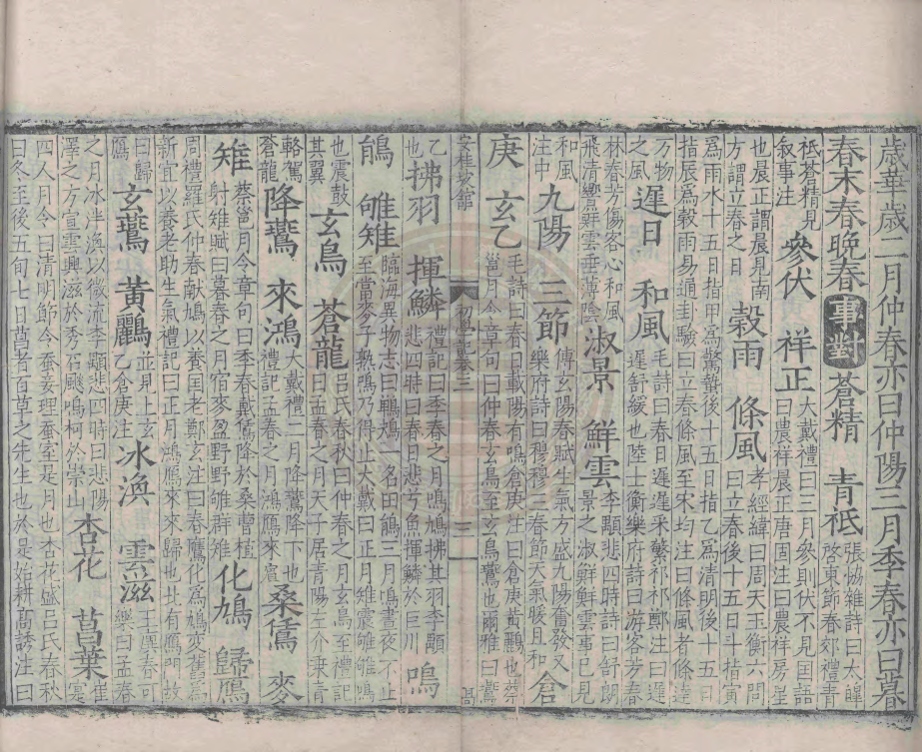 歲華歲二月仲春亦曰仲陽三月季春亦曰暮
春末春晚春 事對 蒼精 青祇 張協雜詩曰太皥啓東節春郊禮青
祇蒼精見敘事注 參伏 祥正 大戴禮曰三月參則伏不見国語曰農祥晨正唐固注曰農祥房星
也晨正謂晨見南方謂立春之日 穀雨 條風 孝經緯曰周天玉衡六間曰立春後十五日斗指寅
為雨水十五日指甲為驚蟄後十五日指乙為清明後十五日指辰為穀雨易通卦驗曰立春條風至宋均注曰條風者條達
万物之風 遲日 和風 毛詩曰春日遲遲采蘩祁祁鄭注曰遲遲舒緩也陸士衡樂府詩曰游客芳春
林春芳傷客心和風飛清響雲垂薄陰 淑景 鮮雲 李顒悲四時詩曰舒朗景之淑鮮鮮雲事已見
和風注中 九陽 三節 傅玄陽春賦生氣方盛九陽奮發又樂府詩曰穆穆三春節天氣暖且和 倉
庚 玄乙 毛詩曰春日載陽有鳴倉庚注曰倉庚黃鸝也蔡邕月令章句曰仲春玄鳥至玄鳥鷰也爾雅曰鷰
安桂坡館 初學記卷三 三
乙也 拂羽 揮鱗 禮記曰季春之月鳴鳩拂其羽李顒悲四時曰春日悲兮魚揮鱗於巨川 鳴
鵃 雊雉 臨海異物志曰一名田鵑三月鳴晝夜不止至當麥子熟鳴乃得止大戴曰正月雉震雊雊鳴
也震鼓其翼 玄鳥 蒼龍 呂氏春秋曰仲春之月玄鳥至禮記曰孟春之月天子居青陽左介乘青
輅駕蒼龍 降鷰 來鴻 大戴禮二月降鷰降下也禮記孟春之月鴻鴈來賓 桑鵀 麥
雉 蔡邕月令章句曰季春戴鵀降於桑曹植射雉賦曰暮春之月宿麥盈野野雉群雊 化鳩 歸鴈
周禮羅氏仲春献鳩以養国老鄭玄注曰春鷹化為鳩变舊為新宜以養老助生氣禮記曰正月鴻鴈來來歸也北有鴈門故
曰歸鴈 玄鷰 黃鸝 並見上玄乙倉庚注 冰渙 雲滋 王廙春可樂曰孟春
之月冰泮渙以微流李顒悲四時曰悲陽澤之方宣雲興滋於秀石飈鳴柯於崇山 杏花 菖葉 崔寔
四人月令曰清明節令蚕妾理蚕室是月也杏花盛呂氏春秋曰冬至後五旬七日菖者百草之先生也於是始耕高誘注曰